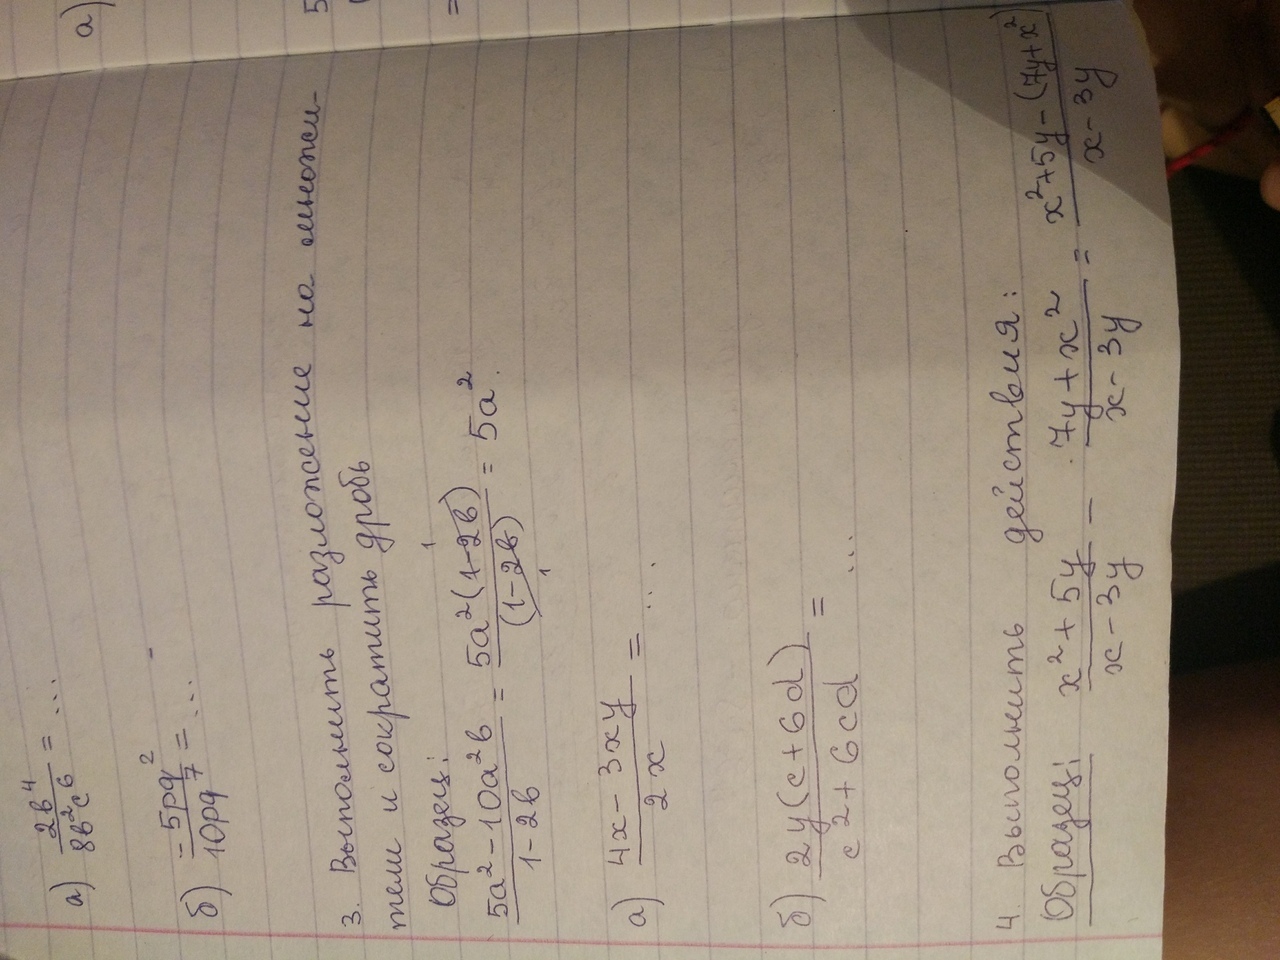 а) 2b⁴/8b²c⁶ = ...
б) -5pq²/10pq⁷ = ...
3. Выполнить разложение на множи-
тели и сократить дробь
Образец:
5a² - 10a²b/1 - 2b = 5a²(1-2b)/(1-2b) = 5a².
а) 4x - 3xy/2x = ...
б) 2y(c + 6d)/c² + 6cd = ...
4. Выполнить действия:
Образец: x² + 5y/x - 3y - 7y + x²/x - 3y = x² + 5y - (7y + x²)/x - 3y
а) 5
=